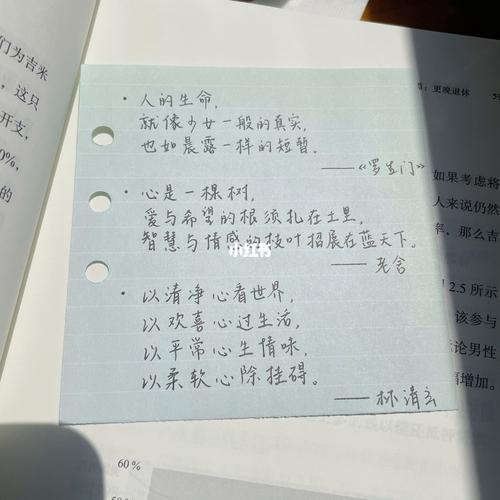 们为吉米
，这只
开支，
0%，
的
·人的生命，
就像少女一般的真实，
也如晨露一样的短暂。
——《罗生门》
·心是一棵树，
爱与希望的根须扎在土里，
智慧与情感的枝叶招展在蓝天下。
——老舍
·以清净心看世界，
以欢喜心过生活，
以平常心生情味，
以柔软心除挂碍。
——林清玄
小红书
：更晚退休
如果考虑将
人来说仍然
率，那么吉
2.5 所示
该参与
论男性
增加。
60%